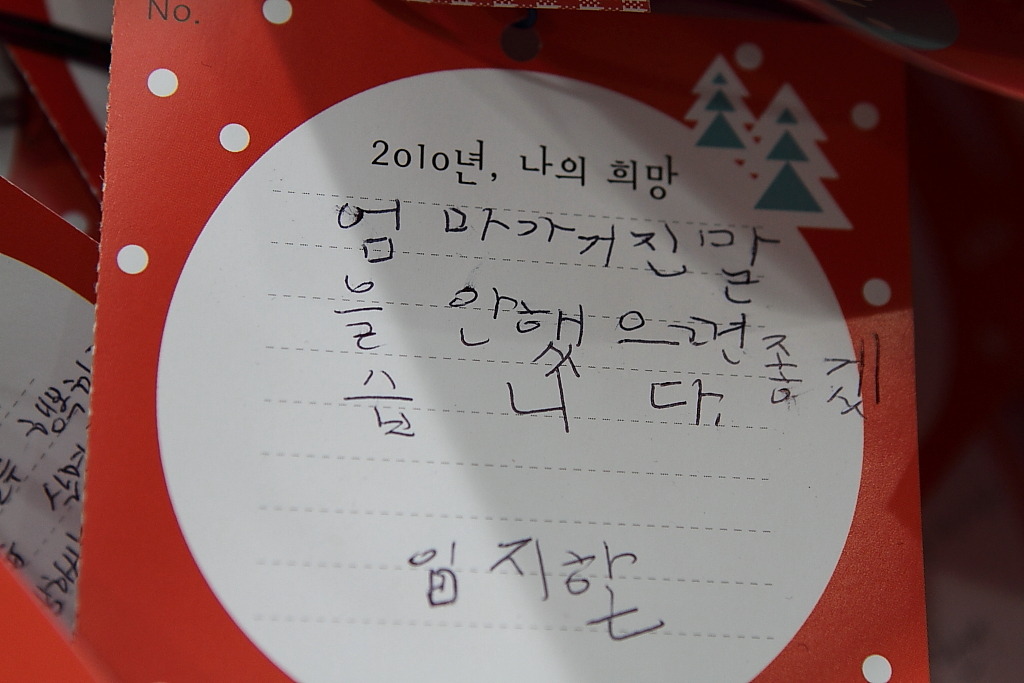 No.
2010년, 나의 희망
엄마가거진말
을 안했으면좋겠
습니다.
임지한